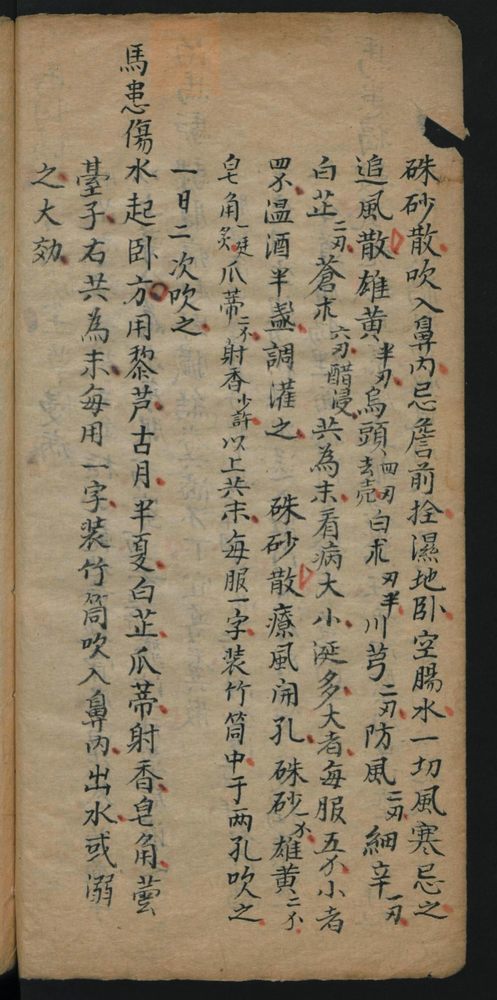 硃砂散吹入鼻內忌簷前拴濕地卧空腸水一切風寒忌之
追風散雄黄半刄烏頭四刄去壳白朮刄半川芎二刄防風二刄細辛一刄
白芷二刄蒼朮六刄醋浸共為末看病大小涎多大者每服五分小者
四分温酒半盞調灌之硃砂散療風開孔硃砂分雄黄二分
皂角一挺炙爪蒂二分射香少許以上共末每服一字装竹筒中于两孔吹之
一日二次吹之
馬患傷水起卧方用黎芦古月半夏白芷爪蒂射香皂角蕓
薹子右共為末每用一字装竹筒吹入鼻内出水或溺
之大効